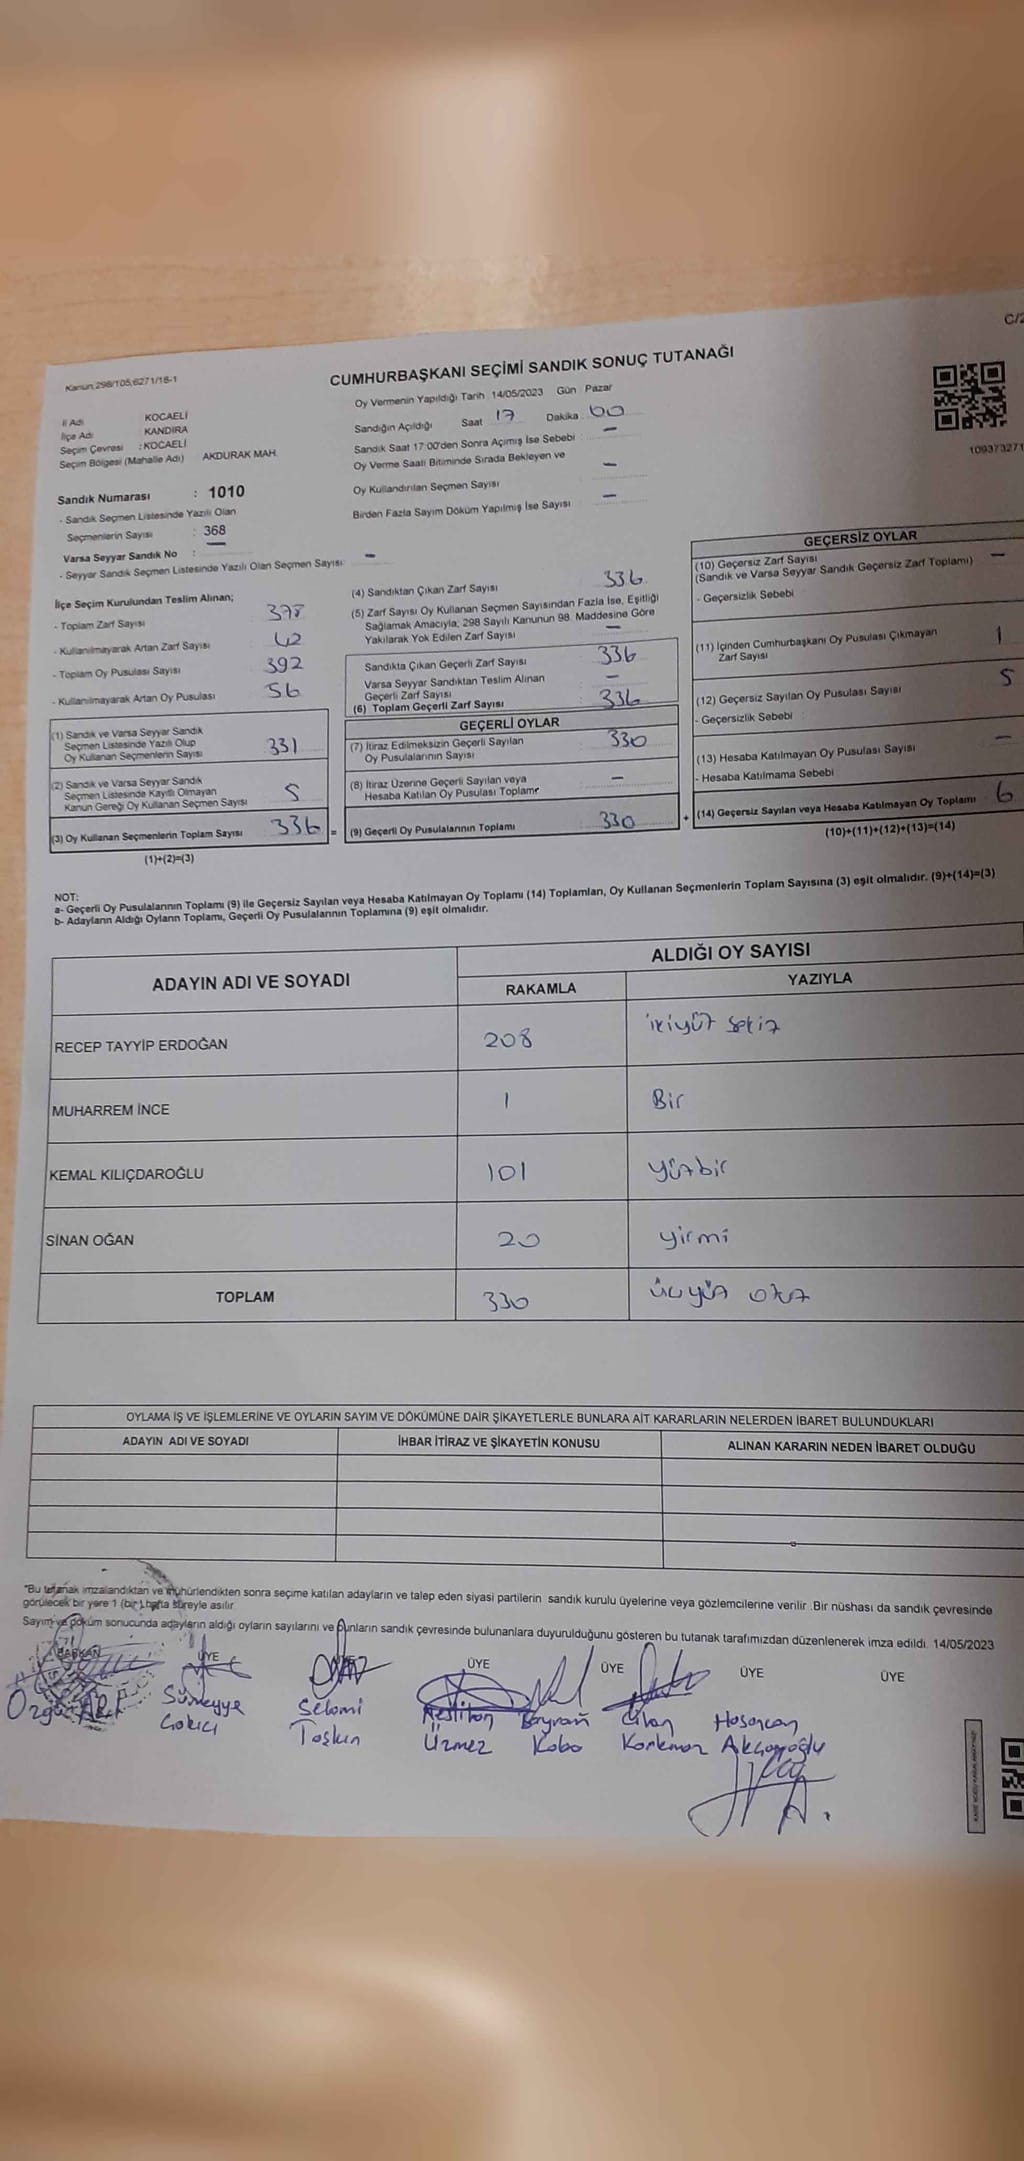 C/2
Kanun;298/105;6271/16-1
CUMHURBAŞKANI SEÇİMİ SANDIK SONUÇ TUTANAĞI
Oy Vermenin Yapıldığı Tarih 14/05/2023 Gün Pazar
İl Adı KOCAELİ
İlçe Adı KANDIRA
Seçim Çevresi : KOCAELİ
Seçim Bölgesi (Mahalle Adı) AKDURAK MAH.
Sandığın Açıldığı Saat 17 Dakika 00
Sandık Saat 17:00'den Sonra Açımış İse Sebebi —
Oy Verme Saati Bitiminde Sırada Bekleyen ve
Oy Kullandırılan Seçmen Sayısı —
Birden Fazla Sayım Döküm Yapılmış İse Sayısı —
109373271
Sandık Numarası : 1010
- Sandık Seçmen Listesinde Yazılı Olan
Seçmenlerin Sayısı : 368
Varsa Seyyar Sandık No : —
- Seyyar Sandık Seçmen Listesinde Yazılı Olan Seçmen Sayısı: —
İlçe Seçim Kurulundan Teslim Alınan;
- Toplam Zarf Sayısı 378
- Kullanılmayarak Artan Zarf Sayısı 42
- Toplam Oy Pusulası Sayısı 392
- Kullanılmayarak Artan Oy Pusulası 56
(1) Sandık ve Varsa Seyyar Sandık
Seçmen Listesinde Yazılı Olup
Oy Kullanan Seçmenlerin Sayısı 331
(2) Sandık ve Varsa Seyyar Sandık
Seçmen Listesinde Kayıtlı Olmayan
Kanun Gereği Oy Kullanan Seçmen Sayısı 5
(3) Oy Kullanan Seçmenlerin Toplam Sayısı 336 =
(1)+(2)=(3)
(4) Sandıktan Çıkan Zarf Sayısı 336
(5) Zarf Sayısı Oy Kullanan Seçmen Sayısından Fazla İse, Eşitliği
Sağlamak Amacıyla; 298 Sayılı Kanunun 98. Maddesine Göre
Yakılarak Yok Edilen Zarf Sayısı —
Sandıkta Çıkan Geçerli Zarf Sayısı 336
Varsa Seyyar Sandıktan Teslim Alınan
Geçerli Zarf Sayısı —
(6) Toplam Geçerli Zarf Sayısı 336
GEÇERLİ OYLAR
(7) İtiraz Edilmeksizin Geçerli Sayılan
Oy Pusulalarının Sayısı 330
(8) İtiraz Üzerine Geçerli Sayılan veya
Hesaba Katılan Oy Pusulası Toplamı —
(9) Geçerli Oy Pusulalarının Toplamı 330 +
GEÇERSİZ OYLAR
(10) Geçersiz Zarf Sayısı
(Sandık ve Varsa Seyyar Sandık Geçersiz Zarf Toplamı) —
- Geçersizlik Sebebi
(11) İçinden Cumhurbaşkanı Oy Pusulası Çıkmayan
Zarf Sayısı 1
(12) Geçersiz Sayılan Oy Pusulası Sayısı 5
- Geçersizlik Sebebi :
(13) Hesaba Katılmayan Oy Pusulası Sayısı —
- Hesaba Katılmama Sebebi
(14) Geçersiz Sayılan veya Hesaba Katılmayan Oy Toplamı 6
(10)+(11)+(12)+(13)=(14)
NOT:
a- Geçerli Oy Pusulalarının Toplamı (9) ile Geçersiz Sayılan veya Hesaba Katılmayan Oy Toplamı (14) Toplamları, Oy Kullanan Seçmenlerin Toplam Sayısına (3) eşit olmalıdır. (9)+(14)=(3)
b- Adayların Aldığı Oyların Toplamı, Geçerli Oy Pusulalarının Toplamına (9) eşit olmalıdır.
ADAYIN ADI VE SOYADI ALDIĞI OY SAYISI
RAKAMLA YAZIYLA
RECEP TAYYİP ERDOĞAN 208 ikiyüz sekiz
MUHARREM İNCE 1 Bir
KEMAL KILIÇDAROĞLU 101 yüzbir
SİNAN OĞAN 20 yirmi
TOPLAM 330 üçyüz otuz
OYLAMA İŞ VE İŞLEMLERİNE VE OYLARIN SAYIM VE DÖKÜMÜNE DAİR ŞİKAYETLERLE BUNLARA AİT KARARLARIN NELERDEN İBARET BULUNDUKLARI
ADAYIN ADI VE SOYADI İHBAR İTİRAZ VE ŞİKAYETİN KONUSU ALINAN KARARIN NEDEN İBARET OLDUĞU
*Bu tutanak imzalandıktan ve mühürlendikten sonra seçime katılan adayların ve talep eden siyasi partilerin sandık kurulu üyelerine veya gözlemcilerine verilir. Bir nüshası da sandık çevresinde
görülecek bir yere 1 (bir) hafta süreyle asılır.
Sayım ve döküm sonucunda adayların aldığı oyların sayılarını ve bunların sandık çevresinde bulunanlara duyurulduğunu gösteren bu tutanak tarafımızdan düzenlenerek imza edildi. 14/05/2023
BAŞKAN ÜYE ÜYE ÜYE ÜYE ÜYE
Özgür Süreyya Selami Bayram Cihan Hasancan
Gökıcı Taşkın Üzmez Kaba Korkmaz Akçaoğlu